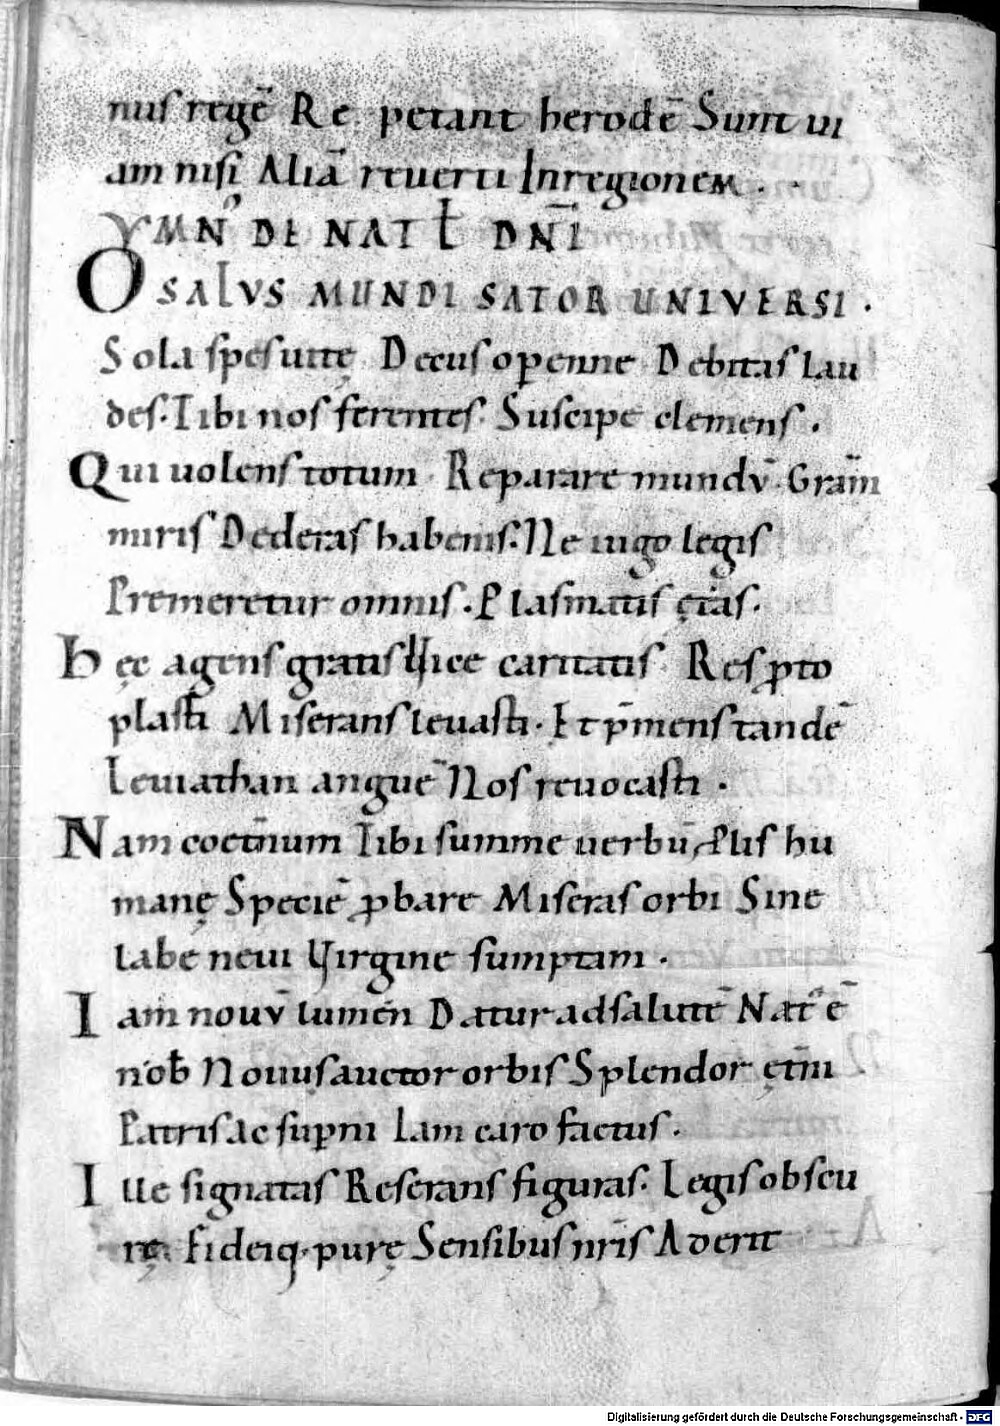 nus regē Re petant herodē Sunt ui
am nisi Aliā reuerti Inregionem .
YMN᾽ DE NAT̄ DN̄I
O SALVS MUNDI SATOR UNIVERSI .
Sola spes uitę Decus oꝑenne Debitas lau
des. Tibi nos ferentes. Suscipe clemens .
Qui uolens totum . Reparare mundū . Gram̄
niris Dederas habenis. Ne iugo legis
Premeretur omnis . Plasmatis ętas .
Hęc agens gratis Uice caritatis . Res ꝓto
plasti Miserans leuasti . Et p̄mens tandē
Leuiathan anguē Nos reuocasti .
Nam coet̄num Tibi summe uerbū Plis hu
manę Speciē ꝓbare Miseras orbi Sine
labe neui Uirgine sumptam .
Iam nouū lumen Datur ad salutē Nat᾽ ē
nob̄ Nouus auctor orbis Splendor ęt̄ni
Patris ac suꝑni Iam caro factus .
Ille signatas Reserans figuras . Legis obscu
rę. Fideiq. purę Sensibus nr̄is Aderit
Digitalisierung gefördert durch die Deutsche Forschungsgemeinschaft - DFG